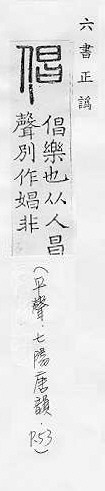 六書正譌
倡
倡樂也从人昌
聲別作娼非
(平聲．七陽唐韻．P.53)